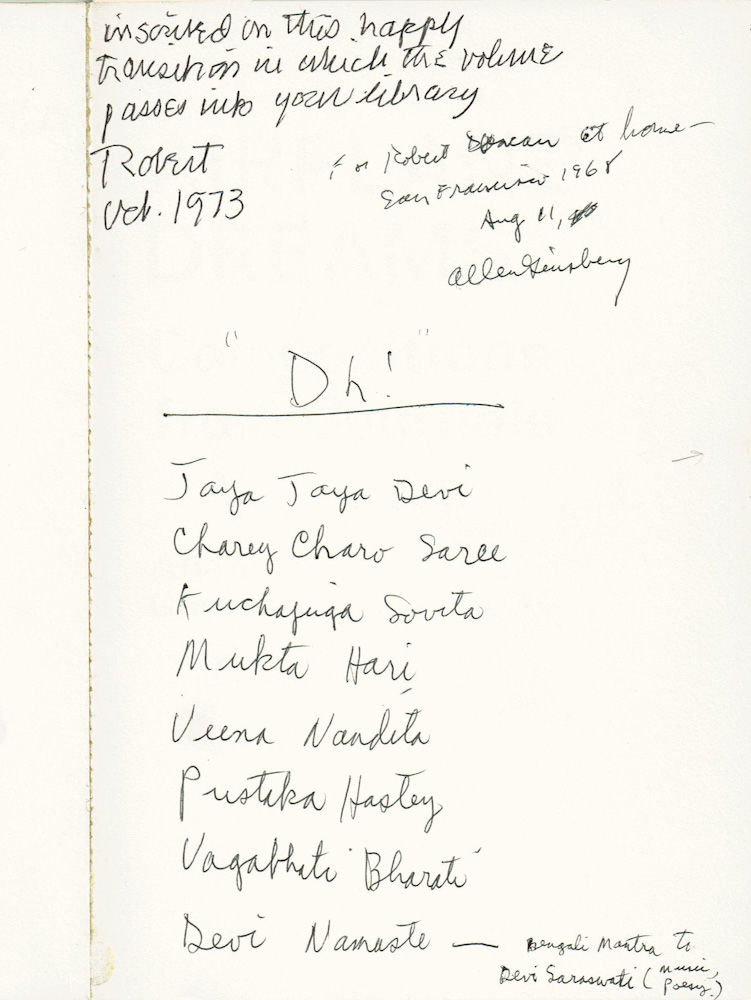 inscribed on this happy
transition in which the volume
passes into your library
Robert
Oct. 1973
For Robert Duncan at home—
San Francisco 1968
Aug 11,
Allen Ginsberg
"Dh!"
Jaya Jaya Devi
Charey Charo Saree
Kuchajuga Sovita
Mukta Hari
Veena Nandita
Pustaka Hastey
Vagabhati Bharati
Devi Namaste — Bengali Mantra to
Devi Saraswati (music,
Poesy.)